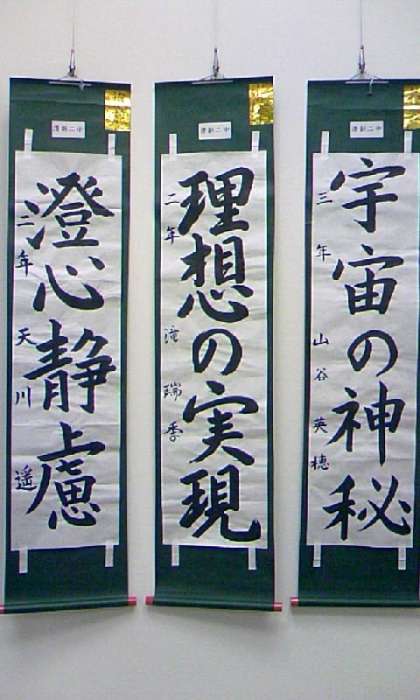 宇宙の神秘
三年 山谷英穂
理想の実現
二年 滝瑞季
澄心静慮
二年 天川遥